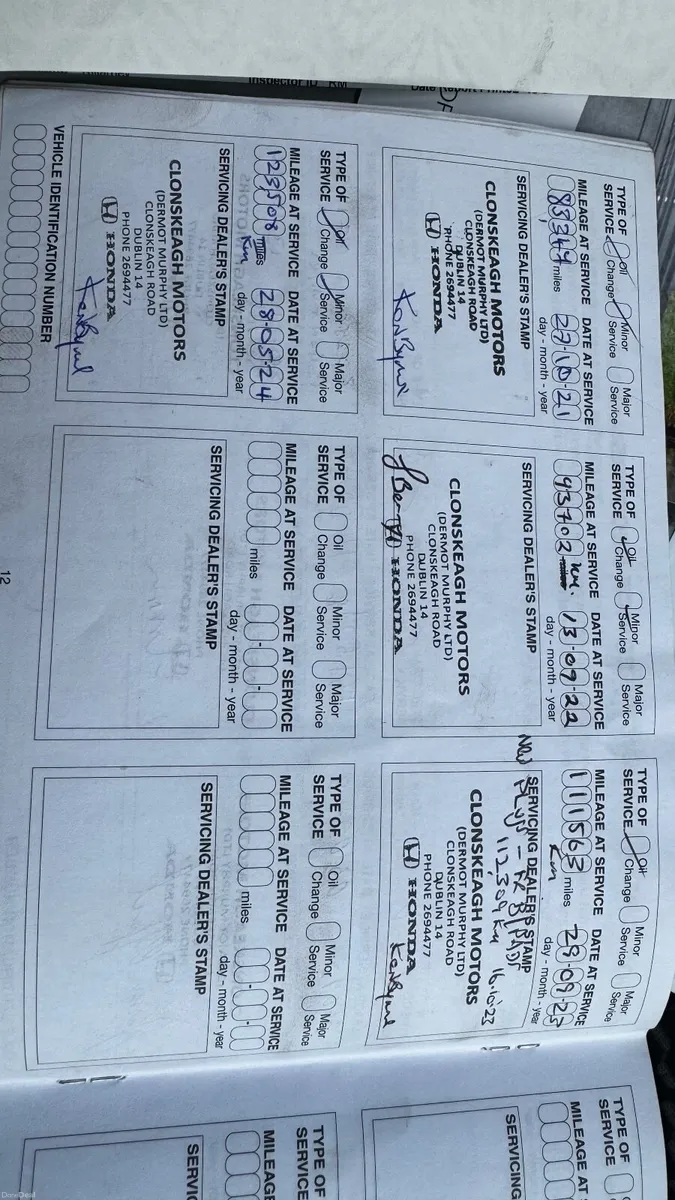 TYPE OF SERVICE
Oil Change
Minor Service
Major Service
MILEAGE AT SERVICE
DATE AT SERVICE
83344 miles
27·10·21
day - month - year
SERVICING DEALER'S STAMP
CLONSKEAGH MOTORS
(DERMOT MURPHY LTD)
CLONSKEAGH ROAD
DUBLIN 14
PHONE 2694477
HONDA
TYPE OF SERVICE
Oil Change
Minor Service
Major Service
MILEAGE AT SERVICE
DATE AT SERVICE
93702 km.
13·09·22
day - month - year
SERVICING DEALER'S STAMP
CLONSKEAGH MOTORS
(DERMOT MURPHY LTD)
CLONSKEAGH ROAD
DUBLIN 14
PHONE 2694477
HONDA
TYPE OF SERVICE
Oil Change
Minor Service
Major Service
MILEAGE AT SERVICE
DATE AT SERVICE
111563 miles
km
28·09·23
day - month - year
SERVICING DEALER'S STAMP
New Plugs -
112,309 km 16·10·23
CLONSKEAGH MOTORS
(DERMOT MURPHY LTD)
CLONSKEAGH ROAD
DUBLIN 14
PHONE 2694477
HONDA
Ken Byrne
TYPE OF SERVICE
Oil Change
Minor Service
Major Service
MILEAGE AT SERVICE
DATE AT SERVICE
123508 miles
km
28·05·24
day - month - year
SERVICING DEALER'S STAMP
CLONSKEAGH MOTORS
(DERMOT MURPHY LTD)
CLONSKEAGH ROAD
DUBLIN 14
PHONE 2694477
HONDA
Ken Byrne
TYPE OF SERVICE
Oil Change
Minor Service
Major Service
MILEAGE AT SERVICE
DATE AT SERVICE
miles
day - month - year
SERVICING DEALER'S STAMP
TYPE OF SERVICE
Oil Change
Minor Service
Major Service
MILEAGE AT SERVICE
DATE AT SERVICE
miles
day - month - year
SERVICING DEALER'S STAMP
VEHICLE IDENTIFICATION NUMBER
12
TYPE OF SERVICE
MILEAGE AT
SERVICING
TYPE OF SERVICE
MILEAGE
DoneDeal